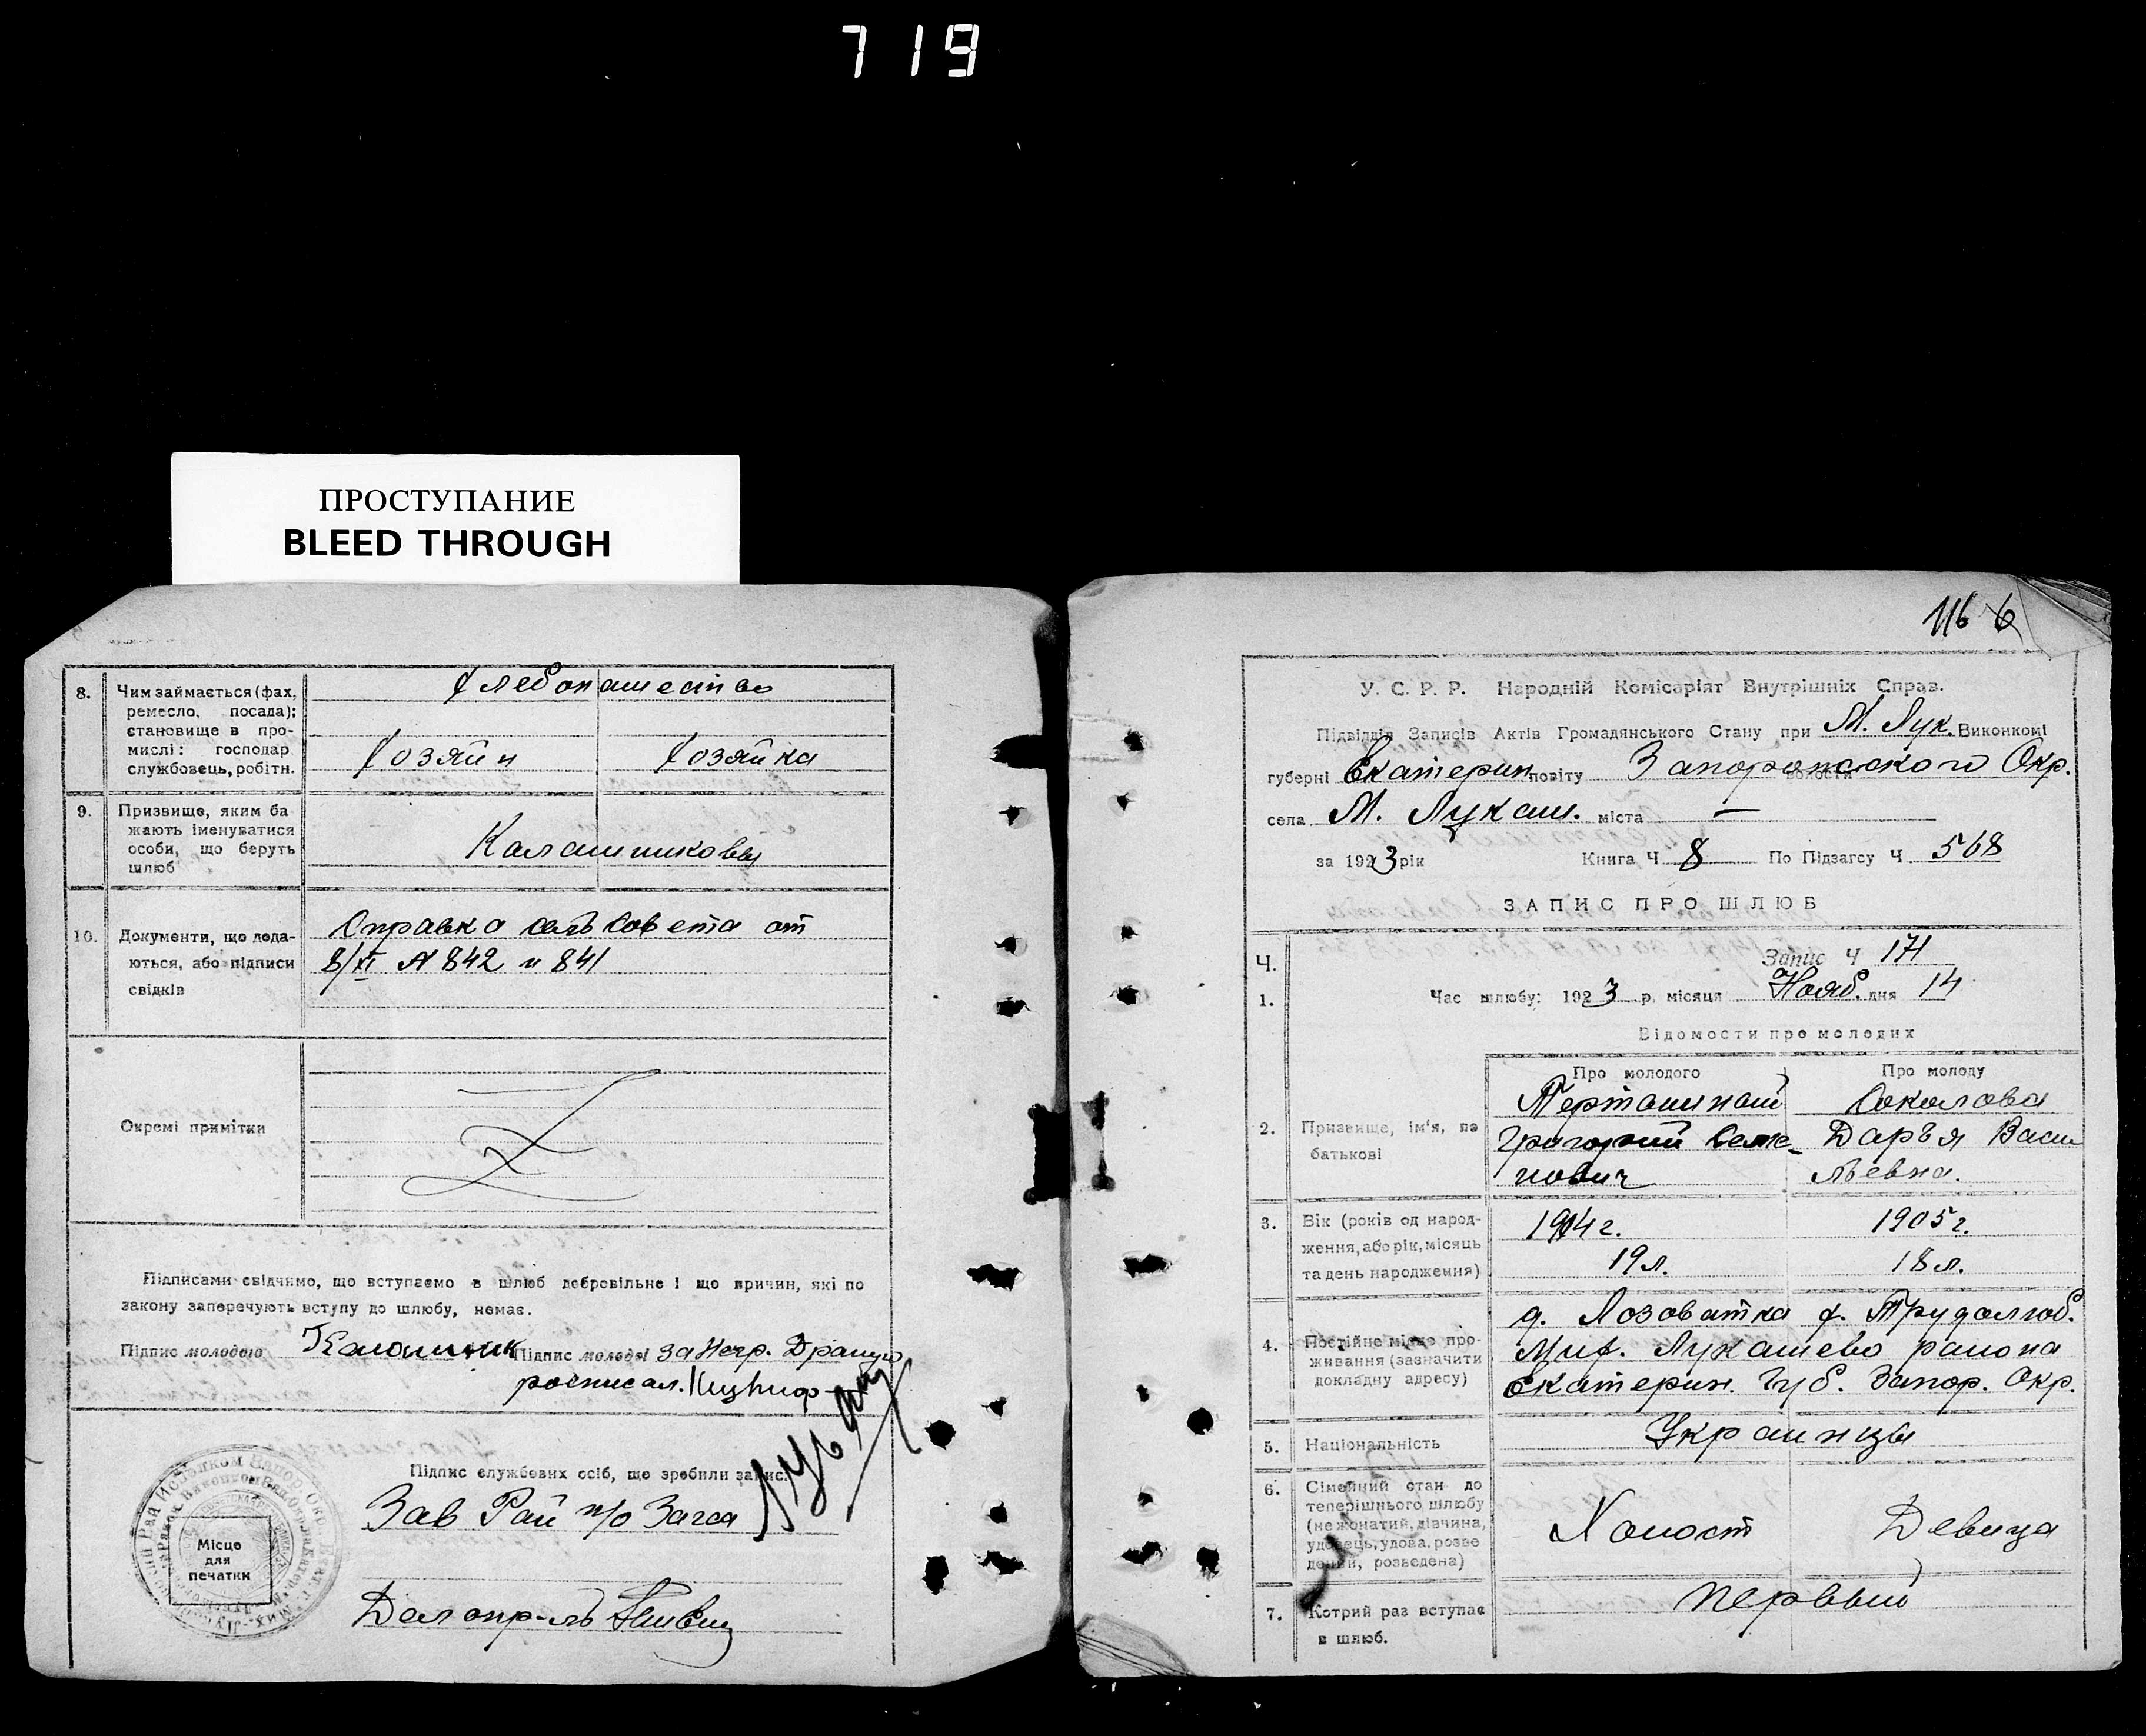 719
ПРОСТУПАНИЕ
BLEED THROUGH
8. Чим займається (фах, ремесло, посада); становище в промислі: господар службовець, робітн.
Хлебопашество
Хозяин
Хозяйка
9. Призвище, яким бажають іменуватися особи, що беруть шлюб
Калашниковы
10. Документи, що додаються, або підписи свідків
Справка сельсовета от
8/XI № 842 и 841
Окремі примітки
Підписами свідчимо, що вступаємо в шлюб добровільне і що причин, які по
закону заперечують вступу до шлюбу, немає.
Підпис молодого
Підпис молодої за негр.
росписал.
Підпис службових осіб, що зробили запис.
Зав Рай п/о Загса
Місце
для
печатки
Делопр-ль
116
У. С. Р. Р. Народній Комісаріят Внутрішніх Справ.
Підвідділ Записів Актів Громадянського Стану при М. Лук. Виконкомі
губерні Екатерин повіту Запорожского Окр.
села М. Лукаш. міста —
за 1923 рік Книга Ч 8 По Підзагсу Ч 568
ЗАПИС ПРО ШЛЮБ
Ч. Запис Ч 171
1. Час шлюбу: 1923 р. місяця Нояб. дня 14
Відомости про молодих
Про молодого
Про молоду
2. Призвище, ім'я, по батькові
Григорий Семе-
нович
Соколова
Дарья Васи-
льевна.
3. Вік (років од народження, або рік, місяць та день народження)
19 л.
1905 г.
18 л.
4. Постійне місце проживання (зазначити докладну адресу)
д. Лозоватка х. Трудолюб.
Мих. Лукашево района
Екатерин. Губ. Запор. Окр.
5. Національність
Украинцы
6. Сімейний стан до теперішнього шлюбу (нежонатий, дівчина, удовець, удова, розведений, розведена)
Холост
Девица
7. Котрий раз вступає в шлюб.
первый